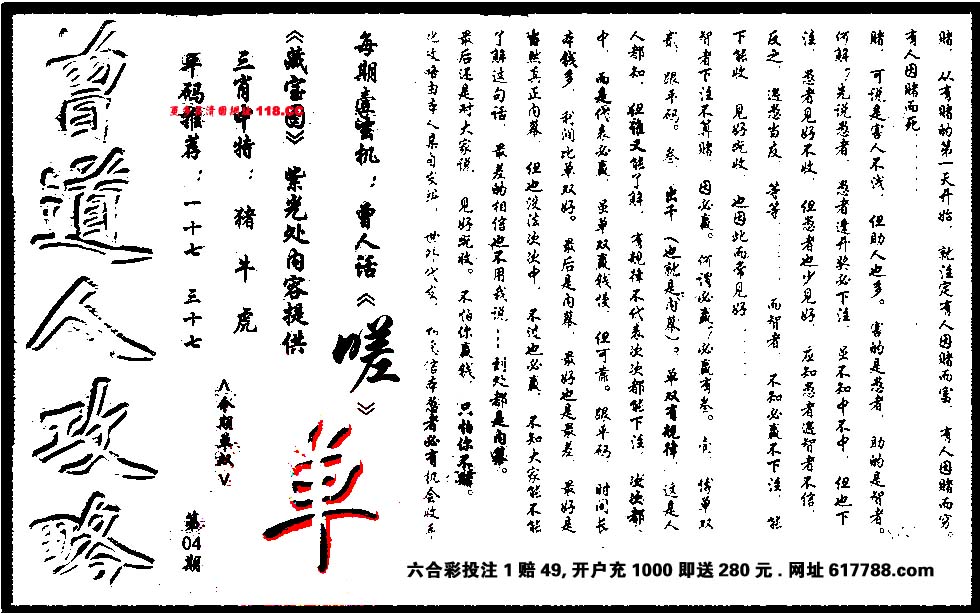 赌，从有赌的第一天开始，就注定有人因赌而富，有人因赌而穷。
有人因赌而死……
赌，可说是害人不浅，但助人也多。害的是愚者，助的是智者。
何解？先说愚者，愚者逢开奖必下注，虽不知中不中，但也下
注，愚者见好不收，但愚者也少见好，应知愚者遇智者不信，
反之，遇愚当友，等等……而智者，不知必赢不下注，能
下能收，见好就收，也因此而常见好……
智者下注不算赌，因必赢。何谓必赢？必赢有叁。壹，博单双
贰，跟平码。叁，出千（也就是内幕）。单双有规律，这是人
人都知，但谁又能了解，有规律不代表次次都能下注，次次都
中，而是代表必赢，虽单双赢钱慢，但可靠。跟平码，时间长，
本钱多，利润比单双好。最后是内幕，最好也是最差，最好是
当然真正内幕，但也没法次次中，不过也必赢，不知大家能不能
了解这句话，最差的相信也不用我说…到处都是内幕。
最后还是对大家说，见好就收。不怕你赢钱，只怕你不赌。
每期善玄机：曾人话《嗟》
《藏宝图》紫光处内容提供
三肖中特：猪 牛 虎
平码推荐：一十七 三十七
118.CC
＜今期单双＞
单
第04期
曾道人攻略
六合彩投注1赔49,开户充1000即送280元.网址617788.com